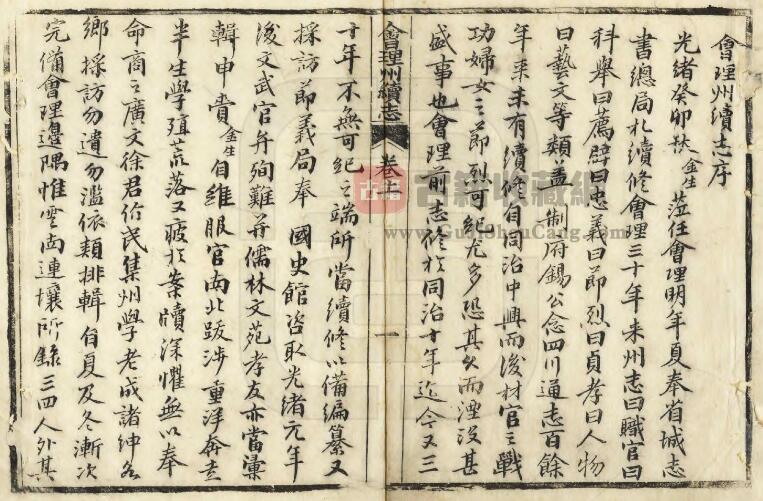 會理州續志序
光緒癸卯秋金生蒞任會理明年夏奉省城志
書總局札續修會理三十年来州志曰職官曰
科舉曰薦辟曰忠義曰節烈曰貞孝曰人物
曰藝文等類蓋制府錫公念四川通志百餘
年来未有續修自同治中興而後材官之戰
功婦女之節烈可紀尤多恐其久而湮没甚
盛事也會理前志修於同治十年迄今又三
會理州續志 卷上 一
十年不無可紀之端所當續修以備編纂又
採訪節義局奉 國史館咨取光緒元年
後文武官弁殉難并儒林文苑孝友亦當彙
輯申賷金生自維服官南北跋涉重洋奔走
半生學殖荒落又疲於案牘深懼無以奉
命商之廣文徐君價民集州學老成諸紳各
鄉採訪勿遺勿濫依類排輯自夏及冬漸次
完備會理邊隅惟雲南連壤所錄三四人外其
古籍 古籍收藏網
www.GuJiShouCang.com